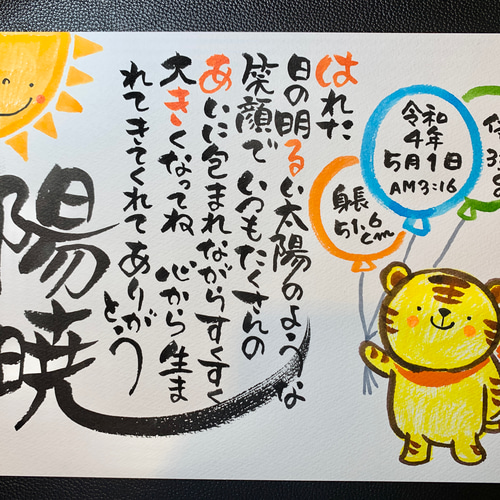 令和
4年
5月1日
AM3:16
身長
51.6
cm
はれた
日の明るい太陽のような
笑顔で いつもたくさんの
あいに包まれながらすくすく
大きくなってね 心から生ま
れてきてくれてありがとう
陽暁